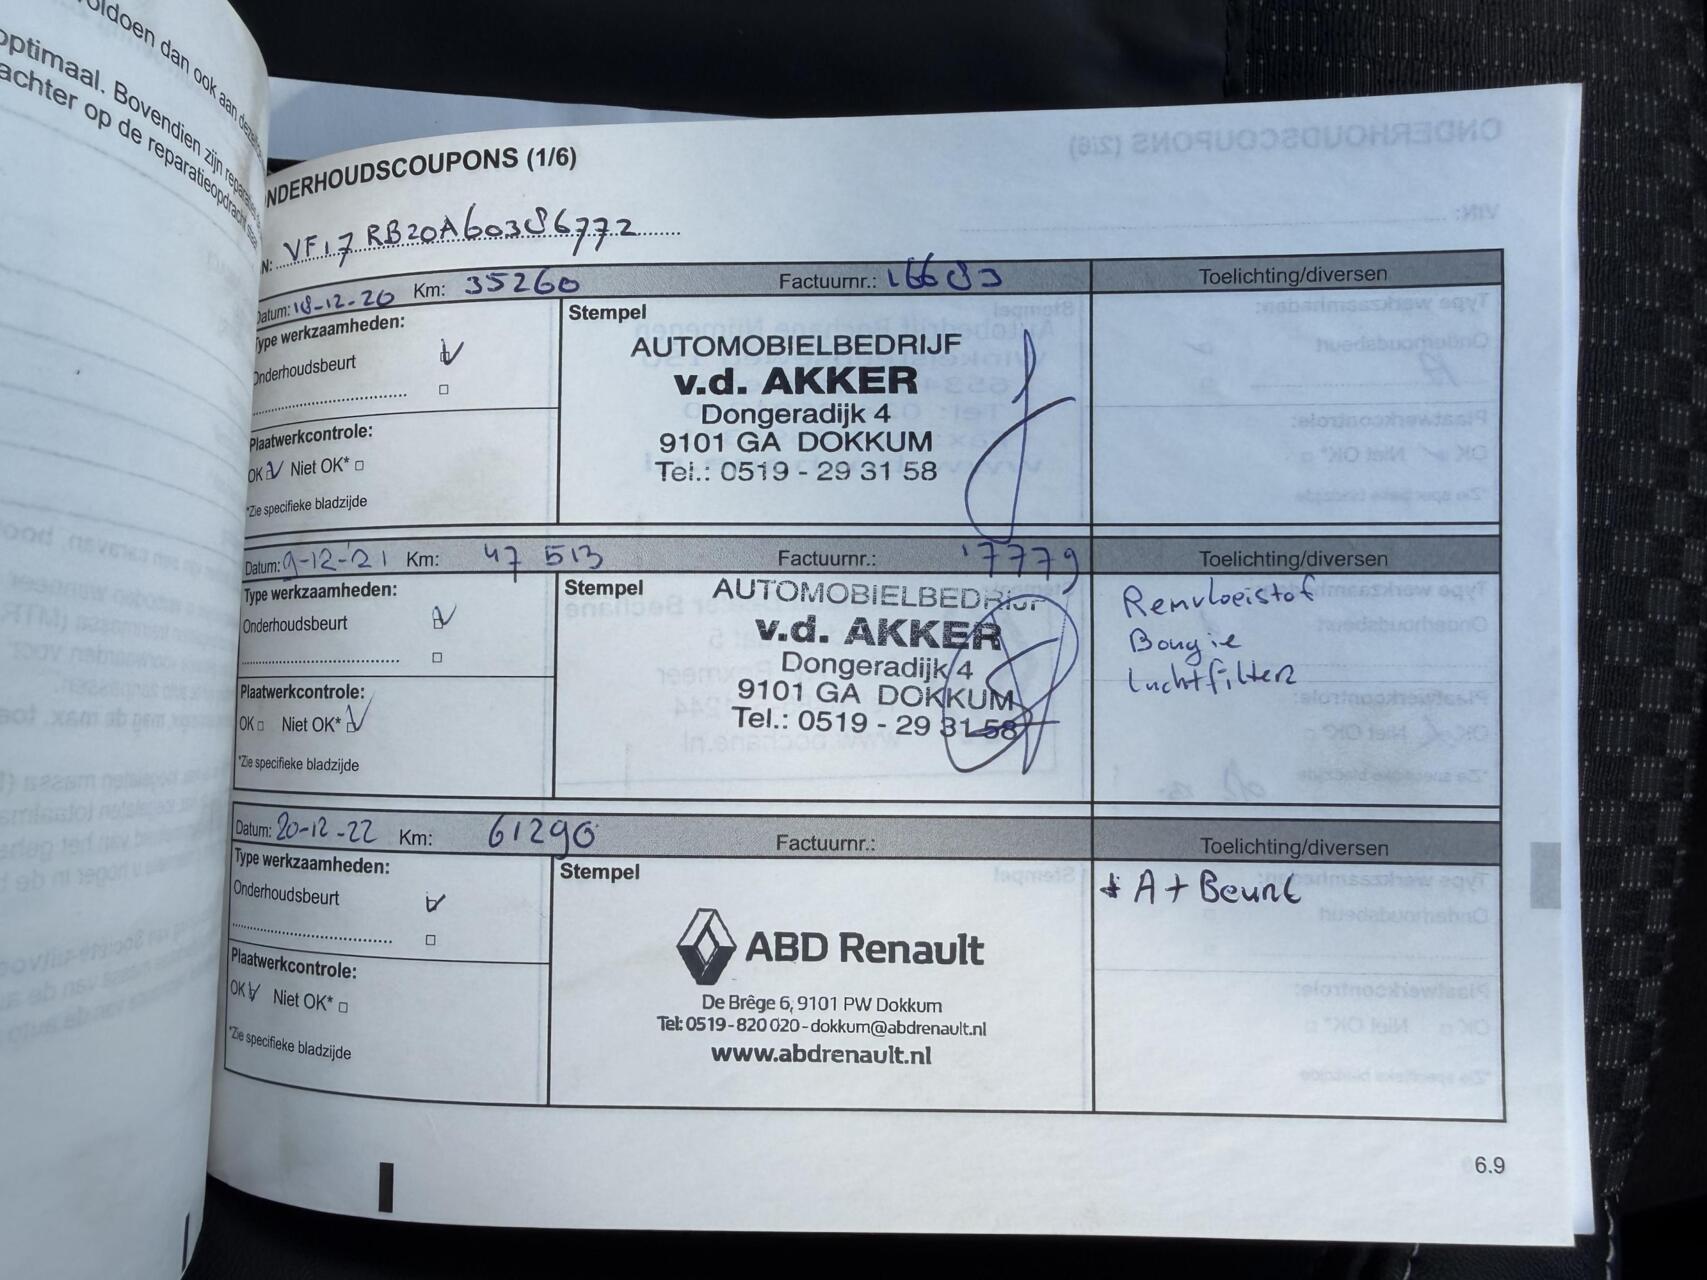 oldoen dan ook aan deze
optimaal. Bovendien zijn
achter op de reparatieopdracht
NDERHOUDSCOUPONS (1/6)
N: VF17RB20A60386772
Datum: 18-12-20 Km: 35260 Factuurnr.: 16683 Toelichting/diversen
Type werkzaamheden:
Onderhoudsbeurt
Plaatwerkcontrole:
OK Niet OK*
*Zie specifieke bladzijde
Stempel
AUTOMOBIELBEDRIJF
v.d. AKKER
Dongeradijk 4
9101 GA DOKKUM
Tel.: 0519 - 29 31 58
Datum: 9-12-'21 Km: 47 513 Factuurnr.: 17779 Toelichting/diversen
Type werkzaamheden:
Onderhoudsbeurt
Plaatwerkcontrole:
OK Niet OK*
*Zie specifieke bladzijde
Stempel
AUTOMOBIELBEDRIJF
v.d. AKKER
Dongeradijk 4
9101 GA DOKKUM
Tel.: 0519 - 29 31 58
Remvloeistof
Bougie
Luchtfilter
Datum: 20-12-22 Km: 61290 Factuurnr.: Toelichting/diversen
Type werkzaamheden:
Onderhoudsbeurt
Plaatwerkcontrole:
OK Niet OK*
*Zie specifieke bladzijde
Stempel
ABD Renault
De Brêge 6, 9101 PW Dokkum
Tel: 0519-820 020 - dokkum@abdrenault.nl
www.abdrenault.nl
* A + Beurt
6.9